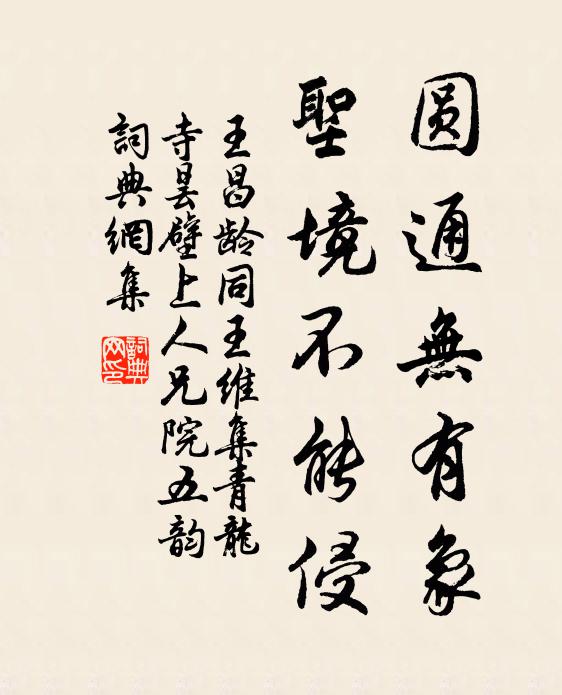 圆通無有象
聖境不能侵
王昌龄同王维集青龍
寺昙壁上人兄院五韵
詞典網集
詞典网印